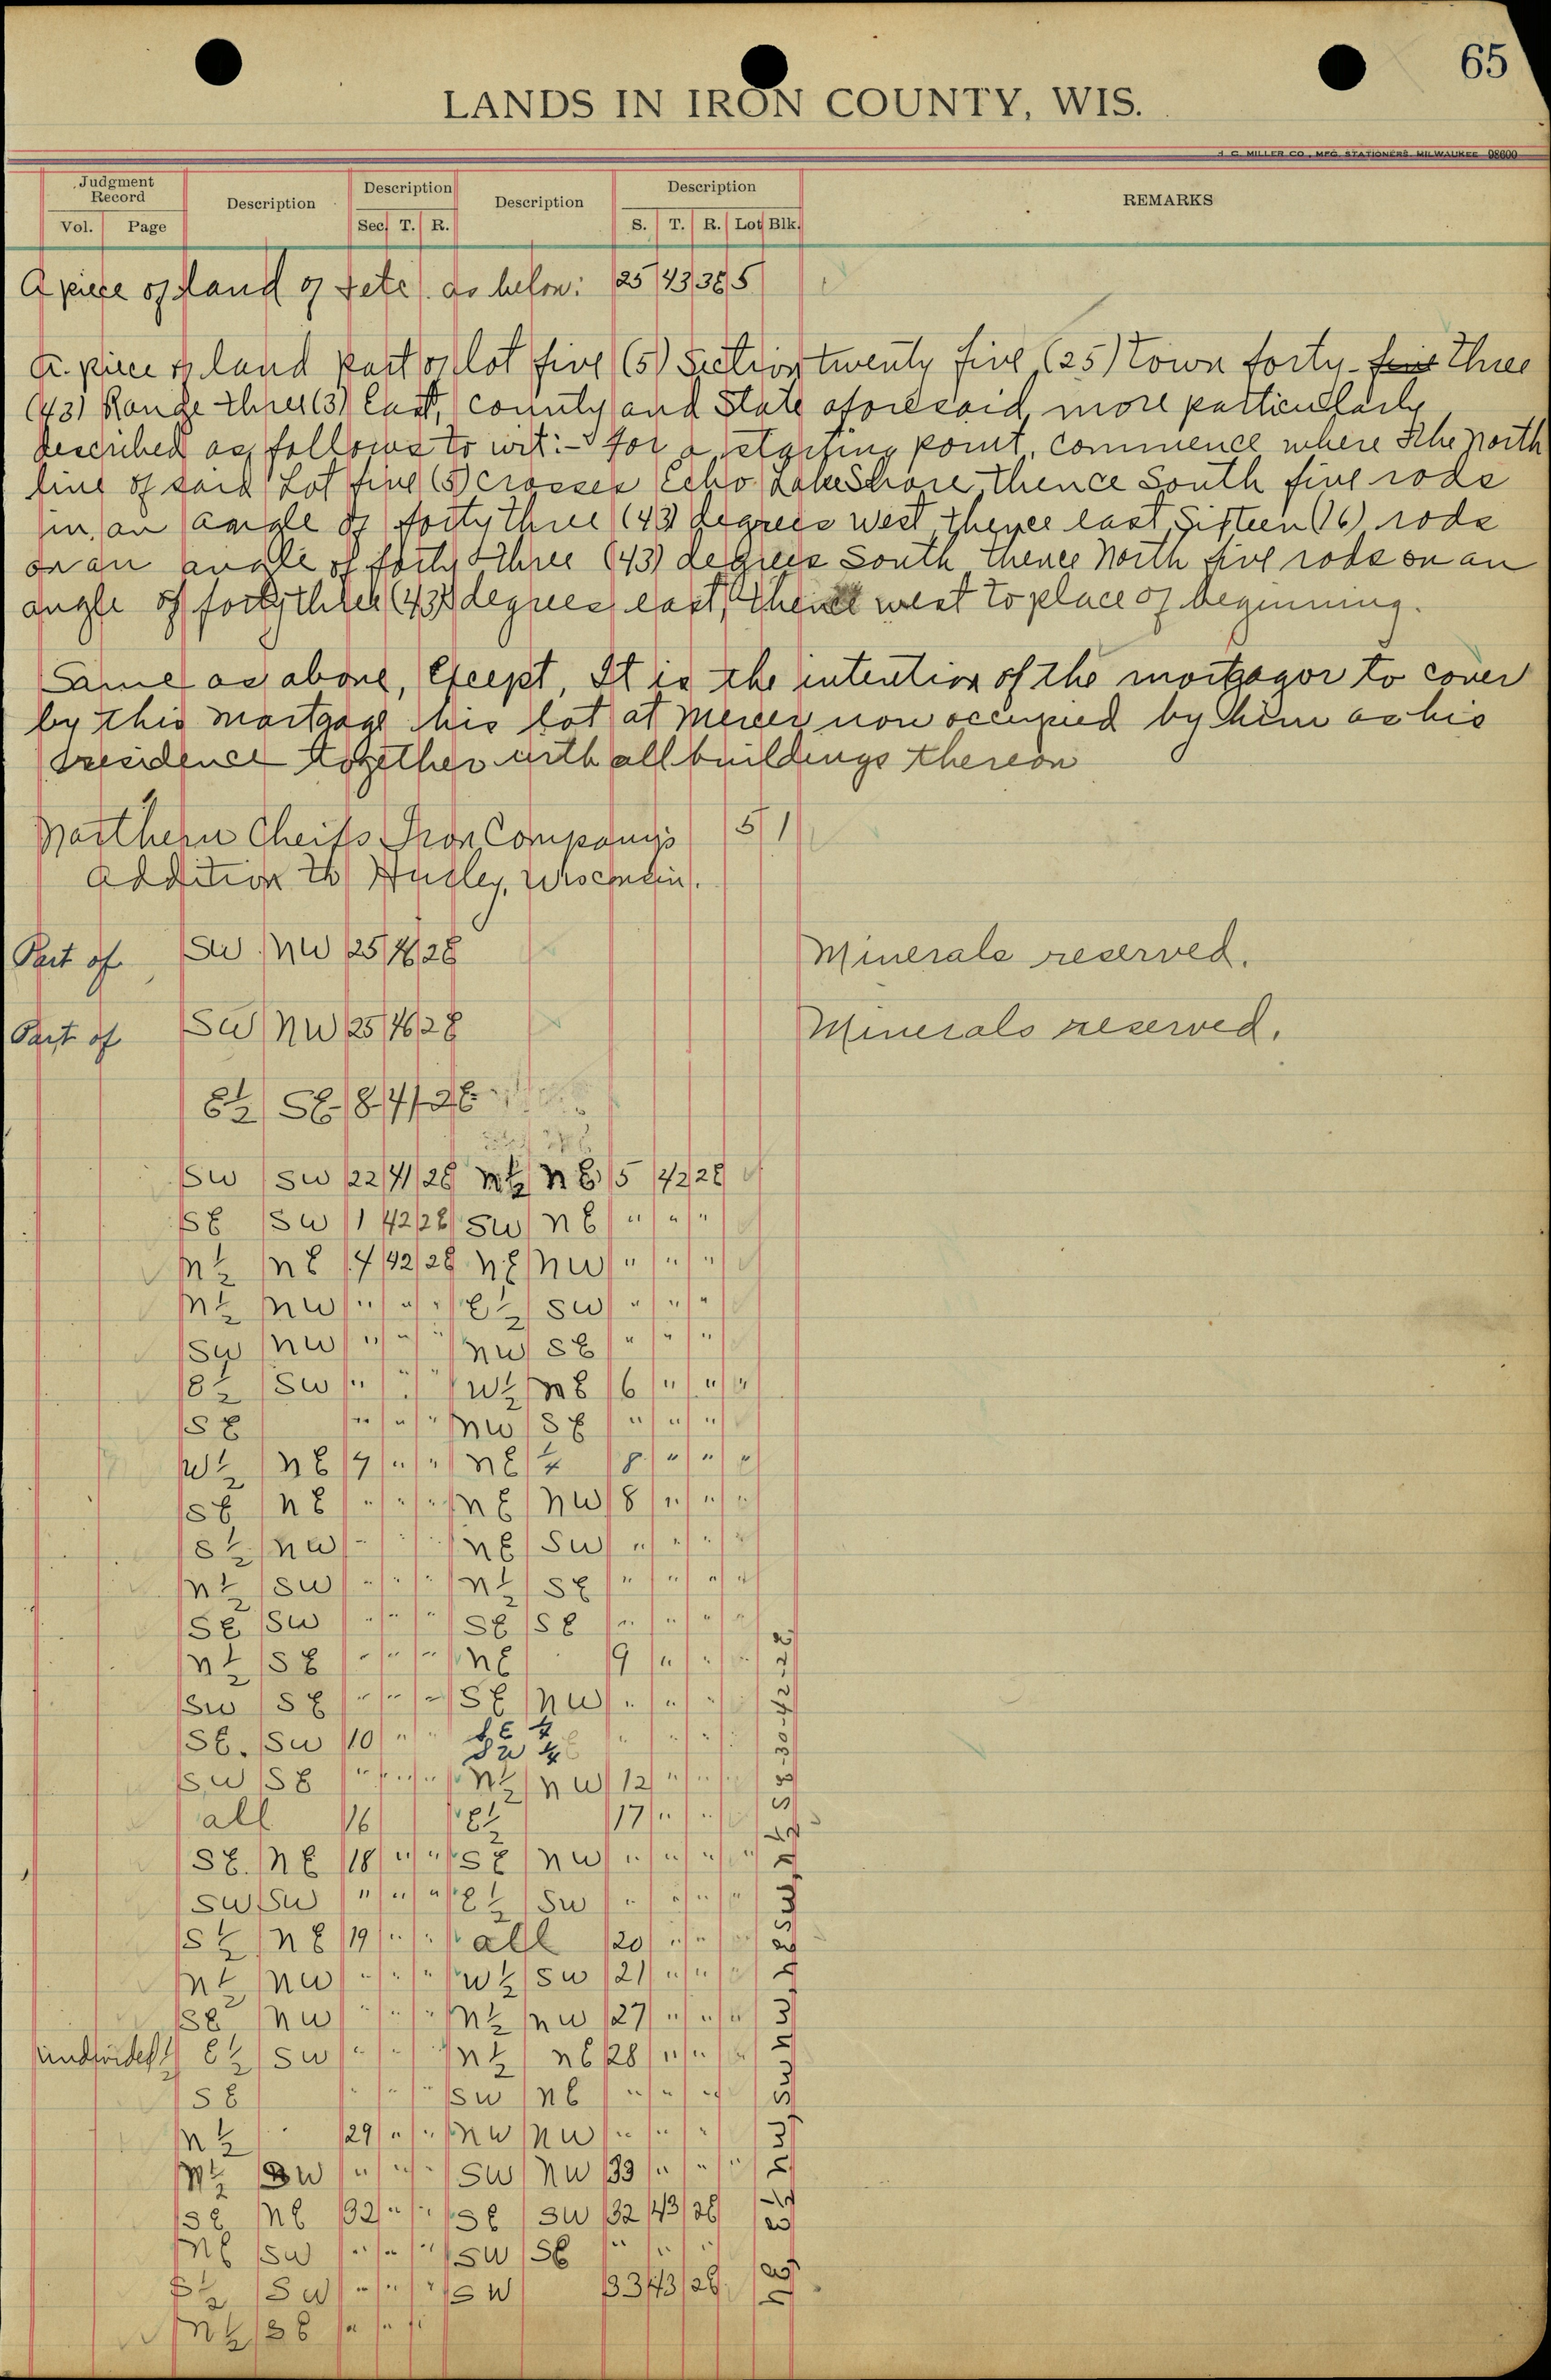 65
LANDS IN IRON COUNTY, WIS.
H. C. MILLER CO., MFG. STATIONERS, MILWAUKEE 98600
Judgment Record
Description
Description
Description
Description
REMARKS
Vol. Page
Sec. T. R.
S. T. R. Lot Blk.
A piece of land as below: 25 43 3E 5
A. piece of land part of lot five (5) Section twenty five (25) town forty-five three
(43) Range three (3) East, county and State aforesaid, more particularly
described as follows to wit:- for a starting point, commence where the North
line of said Lot five (5) crosses Echo Lake Shore, thence South five rods
in an angle of forty three (43) degrees West, thence east Sixteen (16) rods
on an angle of forty three (43) degrees South thence North five rods on an
angle of forty three (43) degrees east, thence west to place of beginning.
Same as above, Except, It is the intention of the mortgagor to cover
by this mortgage his lot at Mercer now occupied by him as his
residence together with all buildings thereon
Northern Cheifs Iron Company's 5 1
addition to Hurley, Wisconsin.
Part of SW NW 25 46 2E Minerals reserved.
Part of SW NW 25 46 2E Minerals reserved.
E½ SE 8 41 2E
SW SW 22 41 2E N½ NE 5 42 2E
SE SW 1 42 2E SW NE " " "
N½ NE 4 42 2E NE NW " " "
N½ NW " " " E½ SW " " "
SW NW " " " NW SE " " "
S½ SW " " " W½ NE 6 " " "
SE " " " NW SE " " "
W½ NE 7 " " " NE ¼ 8 " " "
SE NE " " " NE NW 8 " " "
S½ NW " " " NE SW " " "
N½ SW " " " N½ SE " " "
SE SW " " " SE SE " " "
N½ SE " " " NE 9 " " "
SW SE " " " SE NW " " "
SE. SW 10 " " SE ¼ SW ¼ " " "
SW SE " " " N½ NW 12 " " "
all 16 E½ 17 " " "
SE. NE 18 " " SE NW " " "
SW SW " " " E½ SW " " "
S½ NE 19 " " all 20 " " "
N½ NW " " " W½ SW 21 " " "
SE NW " " " N½ NW 27 " " "
undivided ½ E½ SW " " " N½ NE 28 " " "
SE " " " SW NE " " "
N½ 29 " " NW NW " " "
N½ SW " " " SW NW 33 " " "
SE NE 32 " " SE SW 32 43 2E
NE SW " " " SW SE " " "
S½ SW " " " SW 33 43 2E
N½ SE " " "